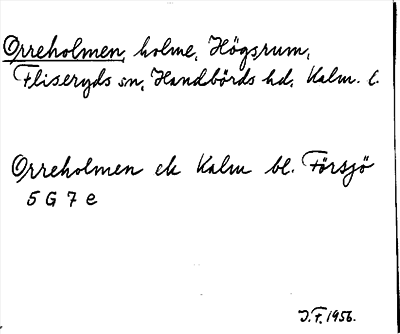 Orreholmen, holme, Högsrum,
Fliseryds sn, Handbörds hd, Kalm. l.
Orreholmen ek Kalm bl. Försjö
5 G 7 e
J.F. 1956.